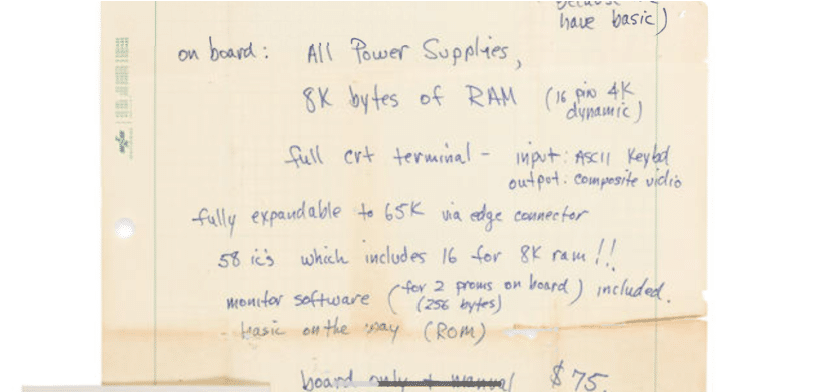 have basic)
on board: All Power Supplies,
8K bytes of RAM (16 pin 4K
dynamic)
full crt terminal - input: ASCII Keybd
output: composite vidio
fully expandable to 65K via edge connector
58 ic's which includes 16 for 8K ram!!
monitor software (for 2 proms on board) included.
(256 bytes)
- basic on the way (ROM)
board only + manual $75.